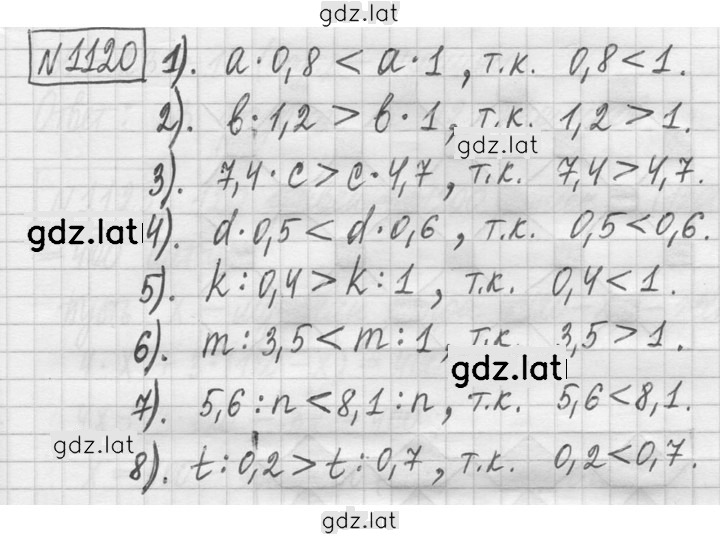 gdz.lat
№1120 1). a·0,8 < a·1, т.к. 0,8<1.
2). в·1,2 > в·1, т.к. 1,2>1.
gdz.lat
3). 7,4·c > c·4,7, т.к. 7,4>4,7.
gdz.lat 4). d·0,5 < d·0,6, т.к. 0,5<0,6.
5). k:0,4 > k:1, т.к. 0,4<1.
6). m:3,5 < m:1, т.к. 3,5>1.
gdz.lat
7). 5,6:n < 8,1:n, т.к. 5,6<8,1.
gdz.lat
8). t:0,2 > t:0,7, т.к. 0,2<0,7.
gdz.lat